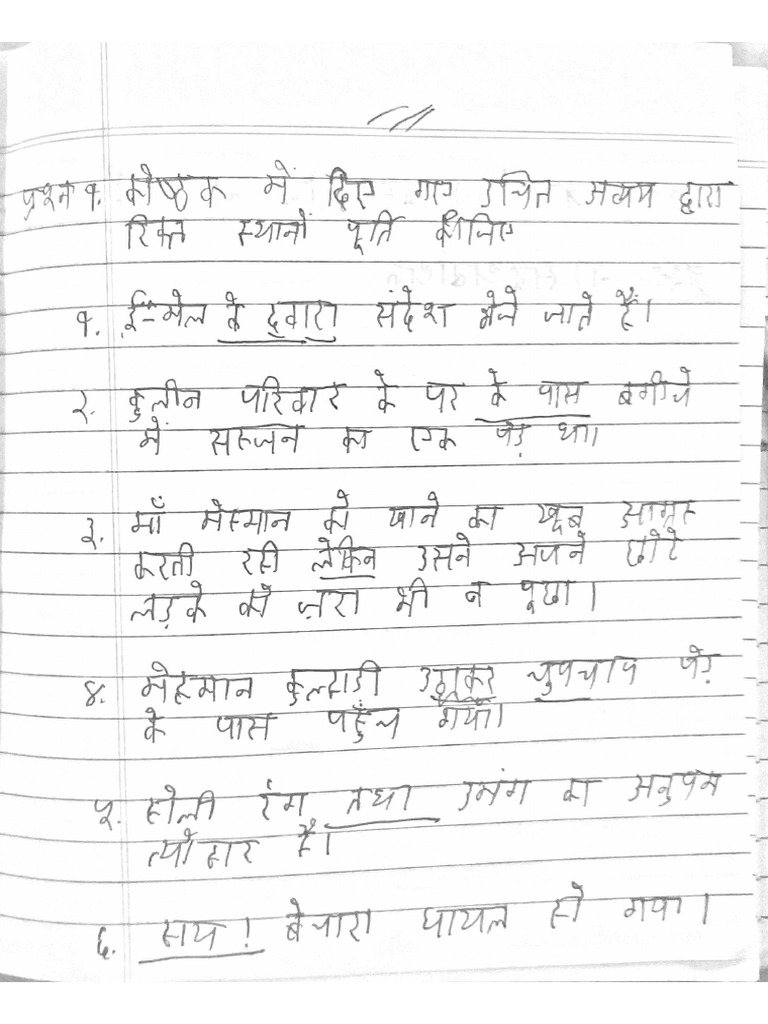 प्रश्न १. कोष्ठक में दिए गए उचित अव्यय द्वारा
रिक्त स्थानों पूर्ति कीजिए
१. ई-मेल के द्वारा संदेश भेजे जाते हैं।
२. कुलीन परिवार के घर के पास बगीचे
में सहजन का एक पेड़ था।
३. माँ मेहमान को खाने का खूब आग्रह
करती रही लेकिन उसने अपने छोटे
लड़के को ज़रा भी न पूछा।
४. मेहमान कुल्हाड़ी उठाकर चुपचाप पेड़
के पास पहुँच गया।
५. होली रंग तथा उमंग का अनुपम
त्यौहार है।
६. हाय! बेचारा घायल हो गया।